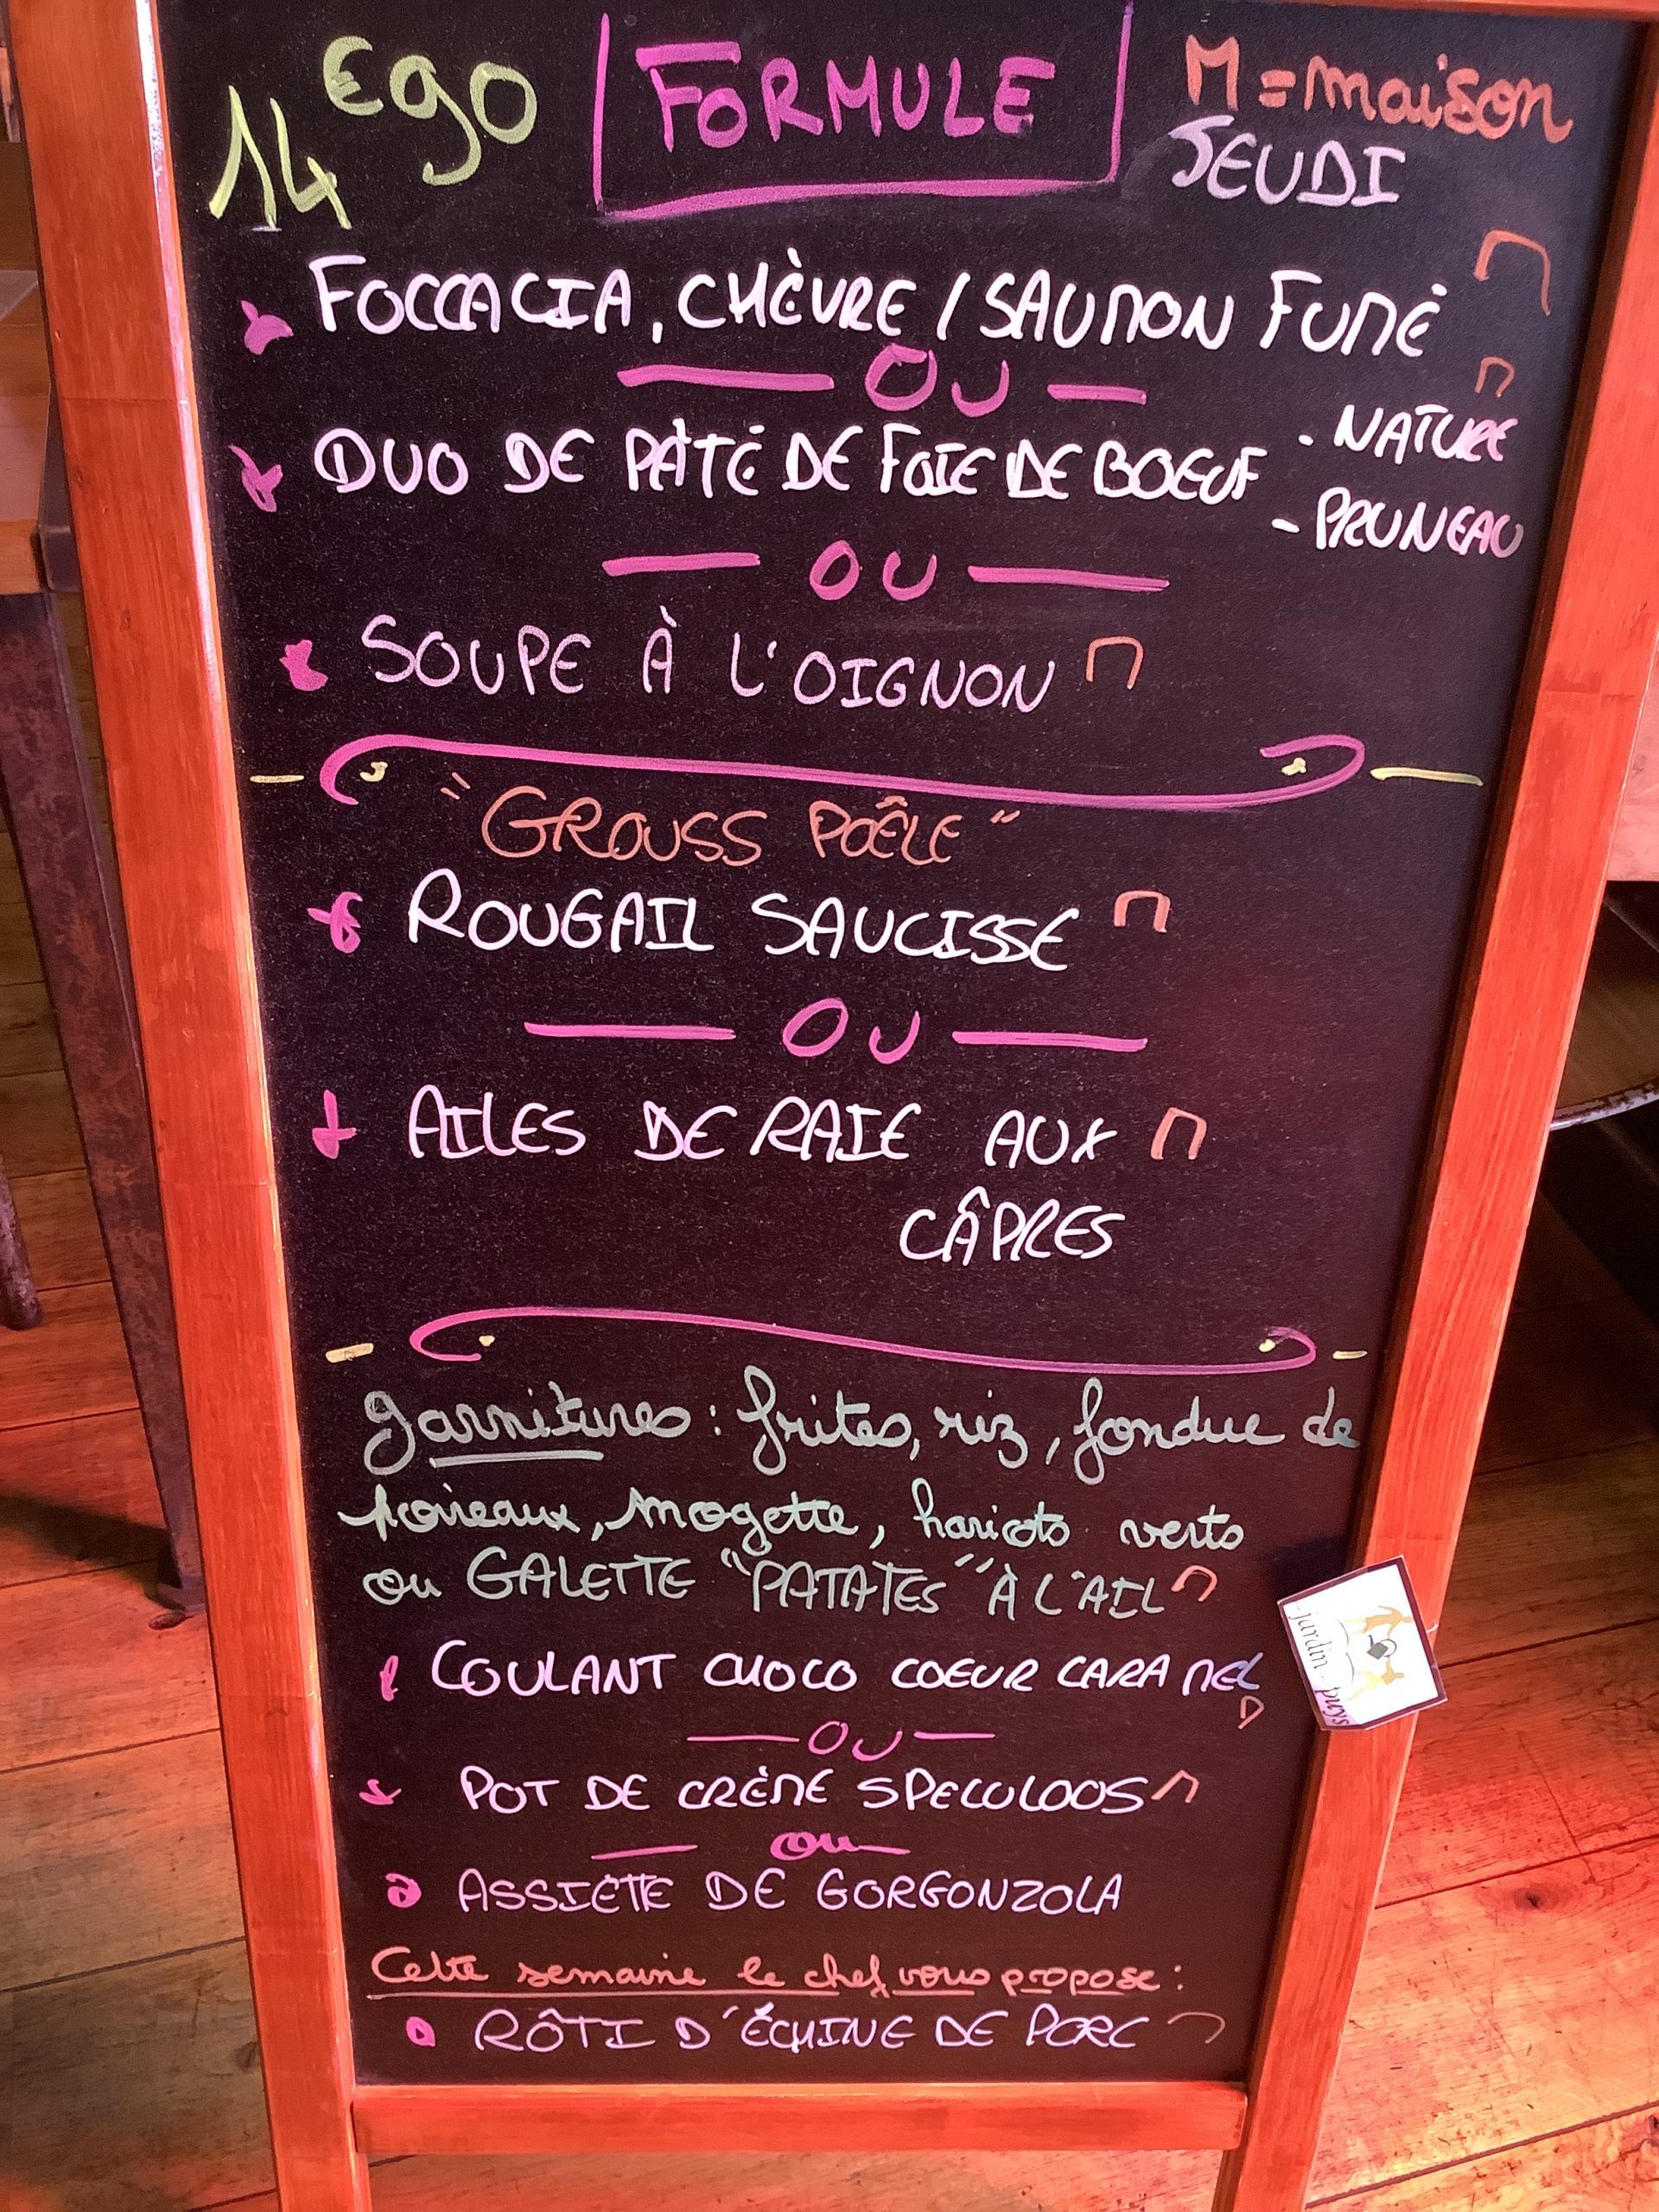 14 €g0
FORMULE
M = maison
JEUDI
FOCCACIA, CHÈVRE / SAUMON FUMÉ M
OU
DUO DE PÂTÉ DE FOIE DE BOEUF M
. NATURE
- PRUNEAU
OU
SOUPE À L'OIGNON M
"GROUSS POÊLE"
ROUGAIL SAUCISSE M
OU
AILES DE RAIE AUX M
CÂPRES
garnitures : frites, riz, fondue de
poireaux, mogette, haricots verts
ou GALETTE "PATATES" À L'AIL M
COULANT CHOCO COEUR CARAMEL
M
OU
POT DE CRÈME SPECULOOS M
ou
ASSIETTE DE GORGONZOLA
Cette semaine le chef vous propose :
RÔTI D'ÉCHINE DE PORC M
jardin
puys